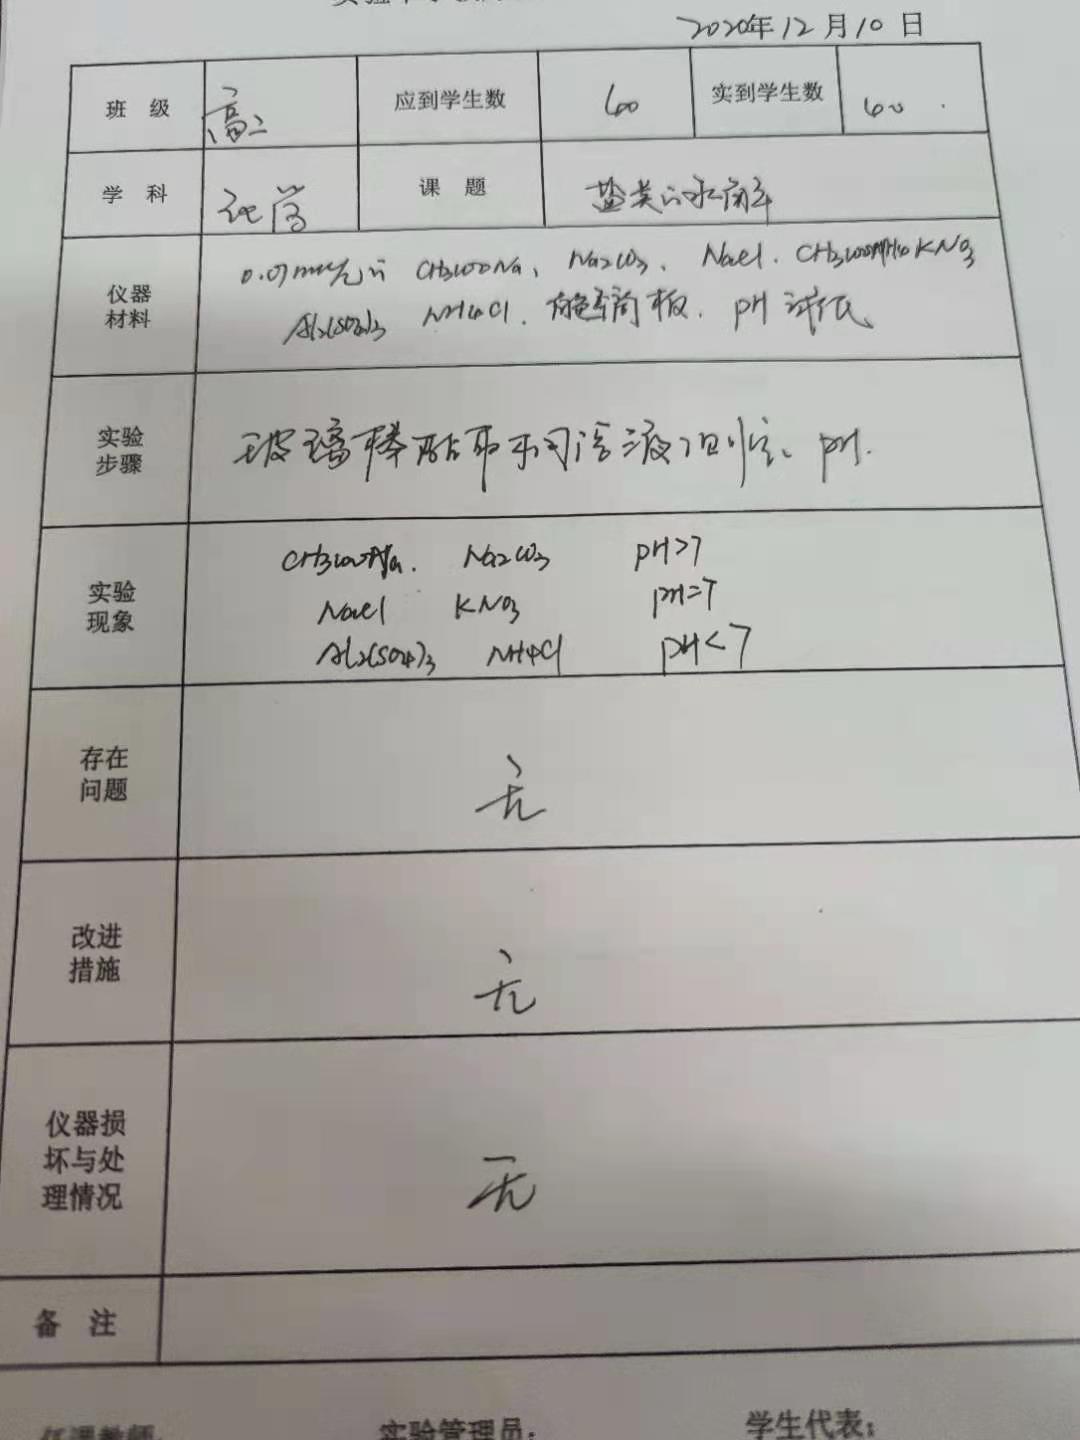 2020年12月10日
班 级 高二 应到学生数 60 实到学生数 60
学 科 化学 课 题 盐类的水解
仪器材料 CH3COONa、Na2CO3、NaCl、KNO3
Al2(SO4)3 NH4Cl、 pH试纸
实验步骤 玻璃棒蘸取不同溶液测定 pH.
实验现象 CH3COONa. Na2CO3 pH>7
NaCl KNO3 pH=7
Al2(SO4)3 NH4Cl pH<7
存在问题 无
改进措施 无
仪器损坏与处理情况 无
备 注
任课教师: 实验管理员: 学生代表: